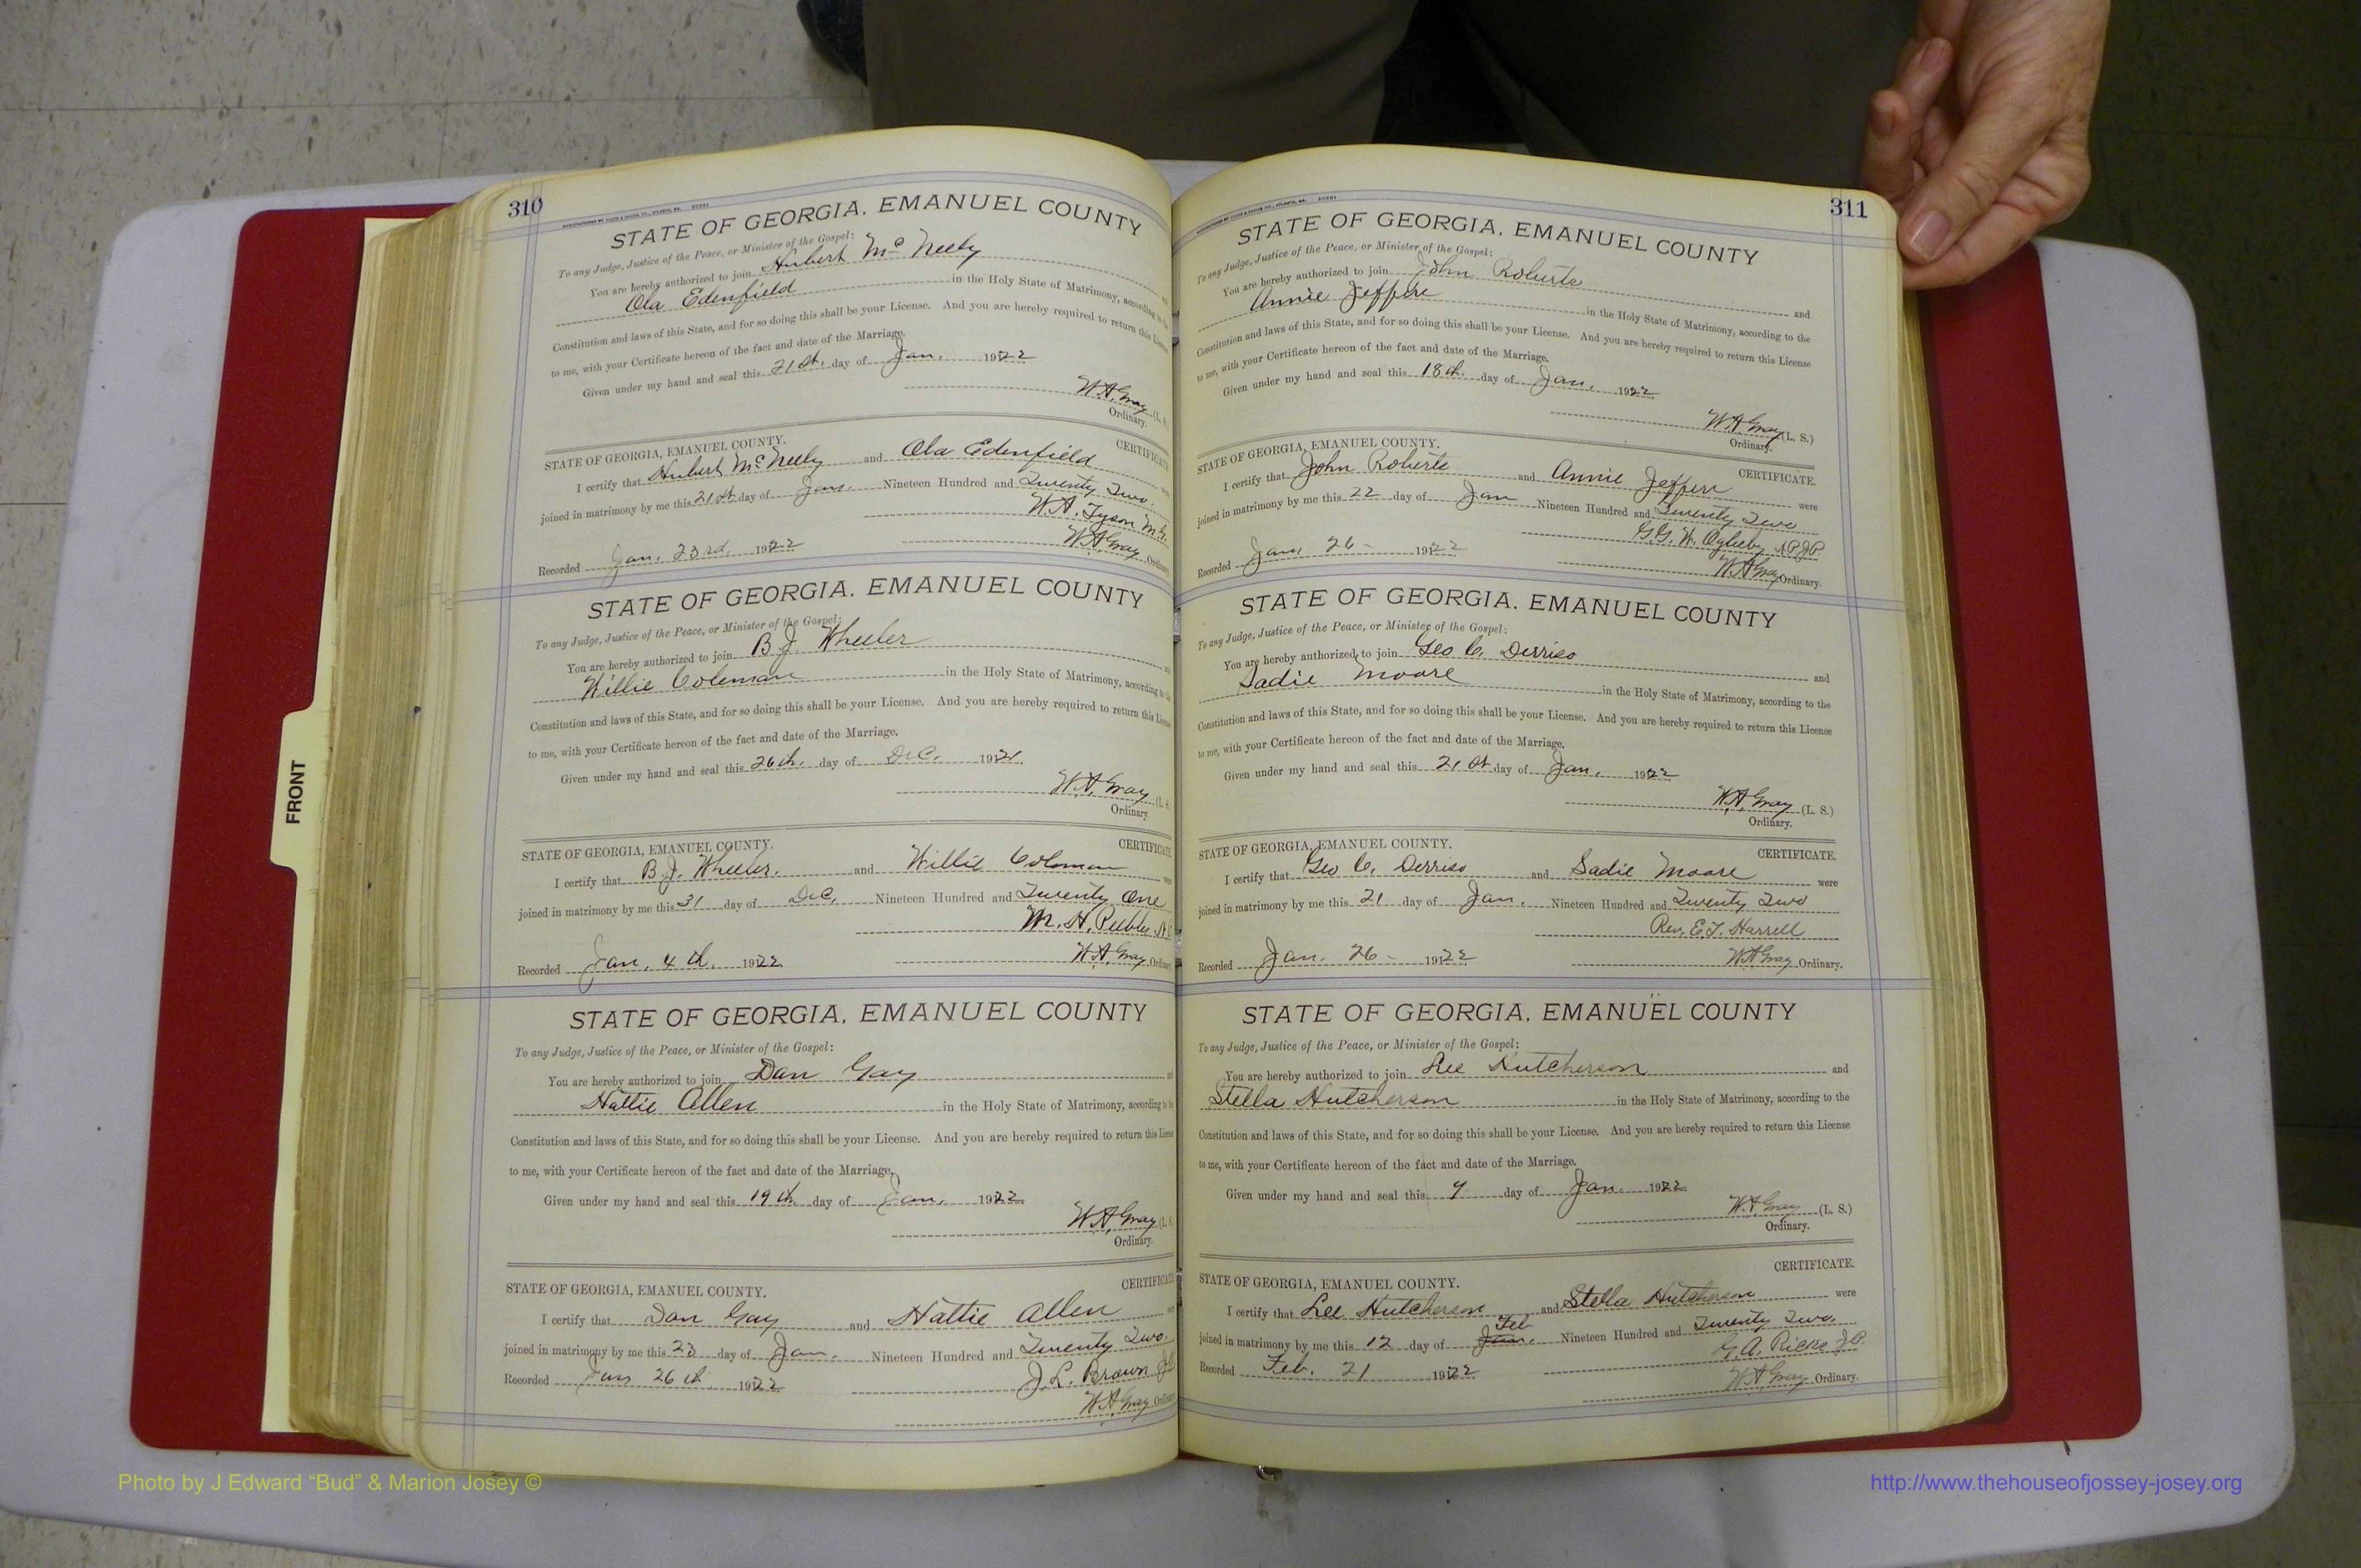 310
STATE OF GEORGIA, EMANUEL COUNTY
To any Judge, Justice of the Peace, or Minister of the Gospel:
You are hereby authorized to join Hubert McNeely
Ola Edenfield in the Holy State of Matrimony, according to
Constitution and laws of this State, and for so doing this shall be your License. And you are hereby required to return this License
to me, with your Certificate hereon of the fact and date of the Marriage.
Given under my hand and seal this 21st. day of Jan. 1922
W.A. Gray (L. S.
Ordinary.
STATE OF GEORGIA, EMANUEL COUNTY. CERTIFICATE
I certify that Hubert McNeely and Ola Edenfield
joined in matrimony by me this 21st day of Jan. Nineteen Hundred and Twenty Two.
W.A. Tyson M.G.
Recorded Jan. 23rd. 1922 W.A. Gray Ordinary
STATE OF GEORGIA, EMANUEL COUNTY
To any Judge, Justice of the Peace, or Minister of the Gospel:
You are hereby authorized to join B.J. Wheeler
Willie Coleman in the Holy State of Matrimony, according to the
Constitution and laws of this State, and for so doing this shall be your License. And you are hereby required to return this License
to me, with your Certificate hereon of the fact and date of the Marriage.
Given under my hand and seal this 26th. day of Dec. 1921.
W.A. Gray (L. S.
Ordinary.
STATE OF GEORGIA, EMANUEL COUNTY. CERTIFICATE
I certify that B.J. Wheeler. and Willie Coleman
joined in matrimony by me this 31 day of Dec. Nineteen Hundred and Twenty One
M. H. Peebles
Recorded Jan. 4th. 1922. W.A. Gray Ordinary
STATE OF GEORGIA, EMANUEL COUNTY
To any Judge, Justice of the Peace, or Minister of the Gospel:
You are hereby authorized to join Dan Gay
Hattie Allen in the Holy State of Matrimony, according to the
Constitution and laws of this State, and for so doing this shall be your License. And you are hereby required to return this License
to me, with your Certificate hereon of the fact and date of the Marriage.
Given under my hand and seal this 19th. day of Jan. 1922.
W.A. Gray (L. S
Ordinary.
STATE OF GEORGIA, EMANUEL COUNTY. CERTIFICATE
I certify that Dan Gay and Hattie Allen
joined in matrimony by me this 23 day of Jan. Nineteen Hundred and Twenty Two.
J.L. Brown
Recorded Jan 26th. 1922 W.A. Gray Ordinary
311
STATE OF GEORGIA, EMANUEL COUNTY
To any Judge, Justice of the Peace, or Minister of the Gospel:
You are hereby authorized to join John Roberts and
Annie in the Holy State of Matrimony, according to the
Constitution and laws of this State, and for so doing this shall be your License. And you are hereby required to return this License
to me, with your Certificate hereon of the fact and date of the Marriage.
Given under my hand and seal this 18th. day of Jan. 1922
W.A. Gray (L. S.)
Ordinary.
STATE OF GEORGIA, EMANUEL COUNTY. CERTIFICATE.
I certify that John Roberts and Annie were
joined in matrimony by me this 22 day of Jan Nineteen Hundred and Twenty Two
G.G.W. N.P.J.P.
Recorded Jan. 26- 1922 W.A. Gray Ordinary.
STATE OF GEORGIA, EMANUEL COUNTY
To any Judge, Justice of the Peace, or Minister of the Gospel:
You are hereby authorized to join Geo C. Derriso and
Sadie Moore in the Holy State of Matrimony, according to the
Constitution and laws of this State, and for so doing this shall be your License. And you are hereby required to return this License
to me, with your Certificate hereon of the fact and date of the Marriage.
Given under my hand and seal this 21st day of Jan. 1922
W.A. Gray (L. S.)
Ordinary.
STATE OF GEORGIA, EMANUEL COUNTY. CERTIFICATE.
I certify that Geo C. Derriso and Sadie Moore were
joined in matrimony by me this 21 day of Jan. Nineteen Hundred and Twenty Two
Rev. E.T. Harrell
Recorded Jan. 26- 1922 W.A. Gray Ordinary.
STATE OF GEORGIA, EMANUEL COUNTY
To any Judge, Justice of the Peace, or Minister of the Gospel:
You are hereby authorized to join Lee Hutcherson and
Stella Hutcherson in the Holy State of Matrimony, according to the
Constitution and laws of this State, and for so doing this shall be your License. And you are hereby required to return this License
to me, with your Certificate hereon of the fact and date of the Marriage.
Given under my hand and seal this 9 day of Jan. 1922.
W.A. Gray (L. S.)
Ordinary.
STATE OF GEORGIA, EMANUEL COUNTY. CERTIFICATE.
I certify that Lee Hutcherson and Stella Hutcherson were
joined in matrimony by me this 12 day of Jan. Feb Nineteen Hundred and Twenty Two.
G.A. Ricks J.P.
Recorded Feb. 21 1922 W.A. Gray Ordinary.
FRONT
Photo by J Edward “Bud” & Marion Josey ©
http://www.thehouseofjossey-josey.org